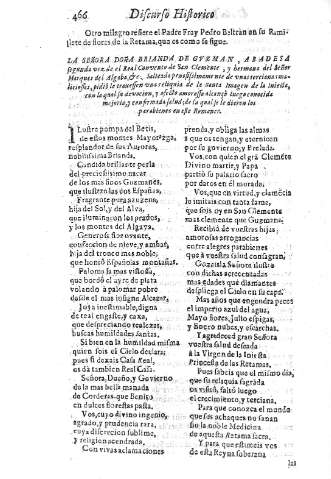 466 Discurso Historico
Otro milagro refiere el Padre Fray Pedro Beltràn en su Rami-
llete de flores de la Retama, que es como se sigue.
LA SEÑORA DOÑA BRIANDA DE GVZMAN, ABADESA
segunda vez de el Real Convento de San Clemente, y hermana del Señor
Marques del Algaba, &c. hallandose de una terciana ma-
liciosa, pidiò le traxessen una reliquia de la Santa Imagen de la Iniesta,
con la qual se
mejoria, y confirmada salud; de la qual le dieron los
parabienes en este Romance.
Ilustre pompa del Betis,
de estos montes Mayorazga,
resplandor de sus Autoras,
nobilissima Brianda.
Candido brillante perla
del preciosissimo nacar
de los mas ricos Guzmanes,
que ilustran las dos Españas.
Fragrante pura azuzena,
hija del Sol, y del Alva,
que iluminaron los prados,
y los montes del Algava.
Generosa flor
confeccion de nieve, y ambar,
hija del tronco mas noble,
que honrò Españolas montañas.
Paloma la mas vistosa,
que bordò el ayre de plata
volando à palomar pobre
desde el mas insigne Alcazar,
Joya inestimable, digna
de real engaste, y caxa,
que despreciando realezas,
buscas humildades santas.
Si bien en la humildad misma
quien sois el Cielo declara;
pues si dexais Casa Real,
es dà tambien Real Casa.
Señora, Dueño, y Govierno
de la mas bella manada
de Corderas, que Benito
en dulces florestas pasta.
Vos, cuyo divino ingenio,
agrado, y prudencia rara,
cuya discrecion sublime,
y religion acendrada,
Con vivas aclamaciones
prenda, y obliga las almas
à que os tengan, y eternicen
por su govierno, y Prelada.
Vos, con quien el grã Clemẽte
Divino martir, y Papa
partiò su palacio sacro
por daros en èl morada.
Vos, que en virtud, y clamẽcia
lo imitais con tanta fama,
que sois oy en San Clemente
mas clemente que Guzmana.
Recibid de vuestras hijas
amorosas arrogancias
entre alegres parabienes
que à vuestra salud consagran.
Gozaisla Señora ilustre
con dichas acrecentadas
mas edades que diamantes
despliega el Cielo en su capa.
Mas años que engendra peces
el imperio azul del agua,
Mayo flores, Julio espigas,
y Enero nubes, y escarchas.
Y agradeced gran Señora
vuestra salud deseada
à la Virgen de la Iniesta
Princesa de las Retamas.
Pues sabeis que el mismo dia,
que su reliquia sagrada
os visitò, faltò luego
el crecimiento, y terciana.
Para que conozca el mundo
que essos achaques no sanan
sin la noble Medicina
de aquesta Retama sacra.
Y para que vuestros ecos
de esta Reyna soberana